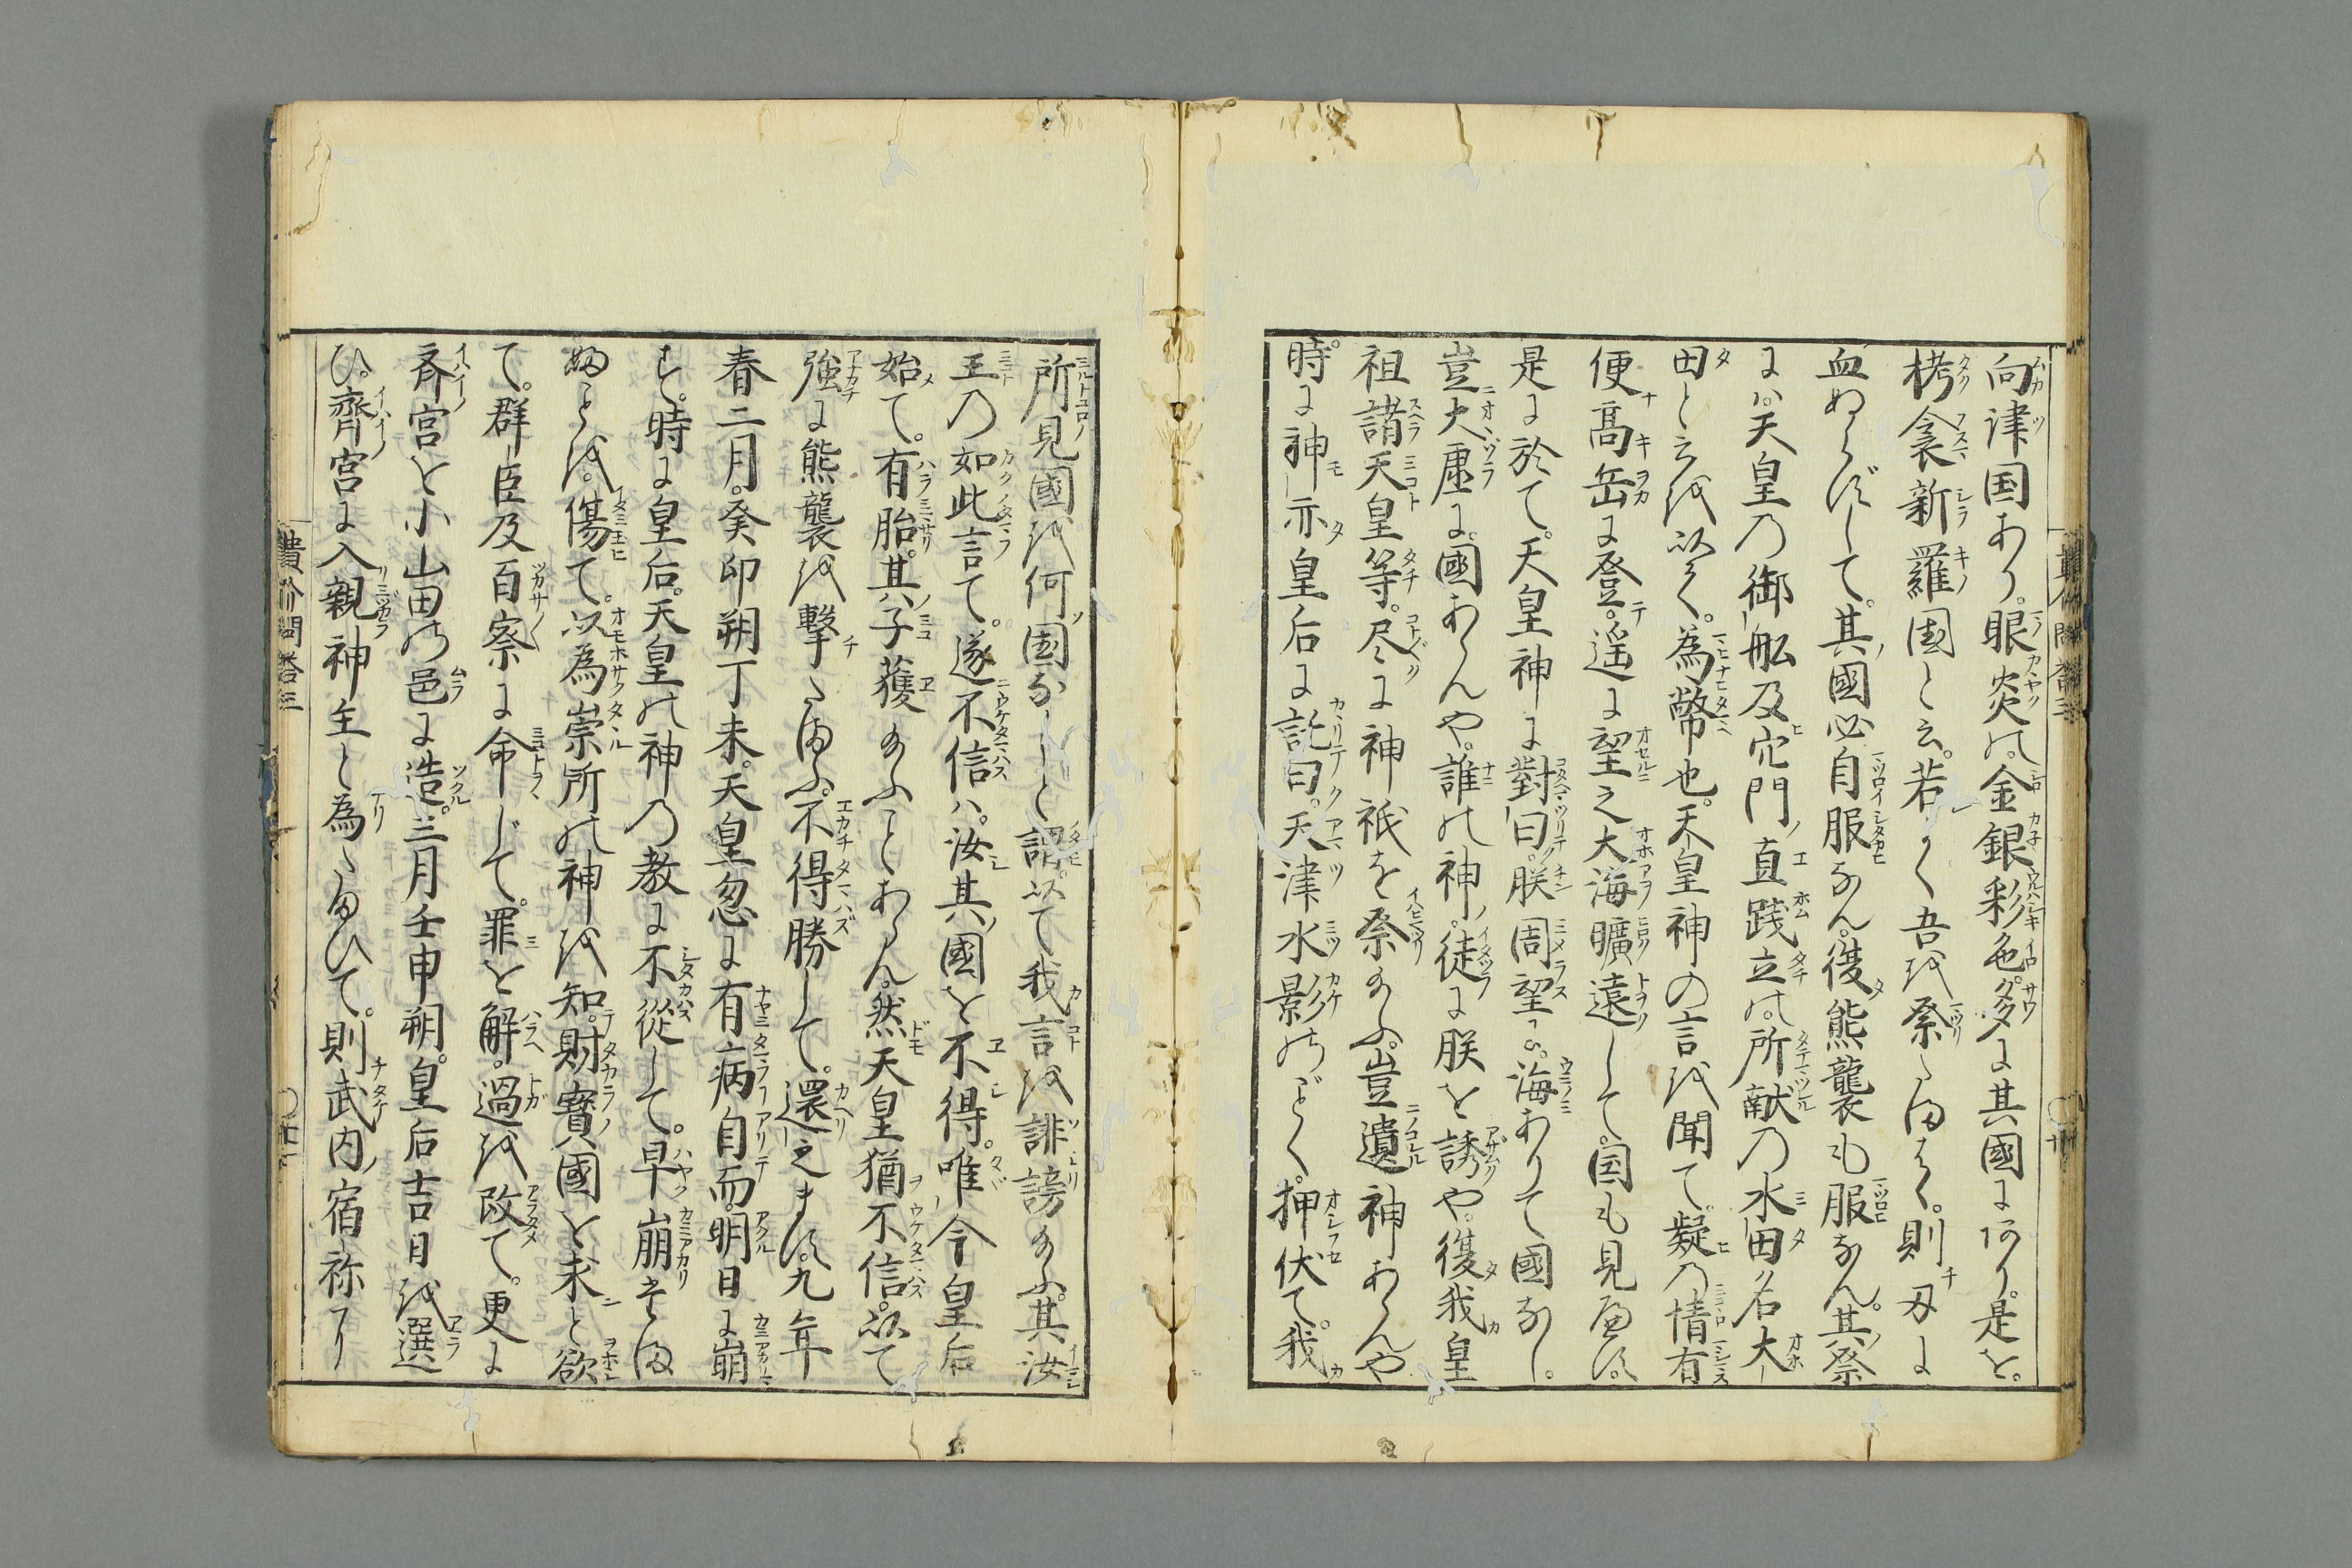 向津国あり。眼炎の金銀彩色多に其國にあり。是を。
栲衾新羅国と云。若よく吾を祭たまはく。則刃に
血ぬらずして。其國必自服なん。復熊襲も服なん。其祭
には。天皇の御舩及穴門直践立の所献の水田名大
田と云を以く。為幣也。天皇神の言を聞て。疑の情有
便髙岳に登。遥に望之大海曠遠して。国も見へず。
是に於て。天皇神に對曰。朕周望に。海ありて國なし。
豈大虚に。國あらんや。誰の神。徒に朕を誘や。復我皇
祖諸天皇等。尽に神祇を祭給ふ。豈遺神あらんや。
時に神亦皇后に託曰。天津水影のごとく。押伏て。我
所見國を何国なしと謂。以て我言を誹謗給ふ。其汝
王の如此言て。遂不信は。汝其國を不得。唯今皇后
始て。有胎。其子獲給ふことあらん。然天皇猶不信。以て
強に熊襲を撃たまふ。不得勝して。還之ます。九年
春二月。癸卯朔丁未。天皇忽に有病自而。明日に崩
す。時に皇后。天皇の神の教に不從して。早崩たま
ぬとを。傷て。以為崇所の神を知。財寳國を求と欲
て。群臣及百寮に命じて。罪を解。過を改て。更に
斉宮を小山田の邑に造。三月壬申朔。皇后吉日を選
ひ。齊宮に入親神主と為たまひて。則武内宿祢